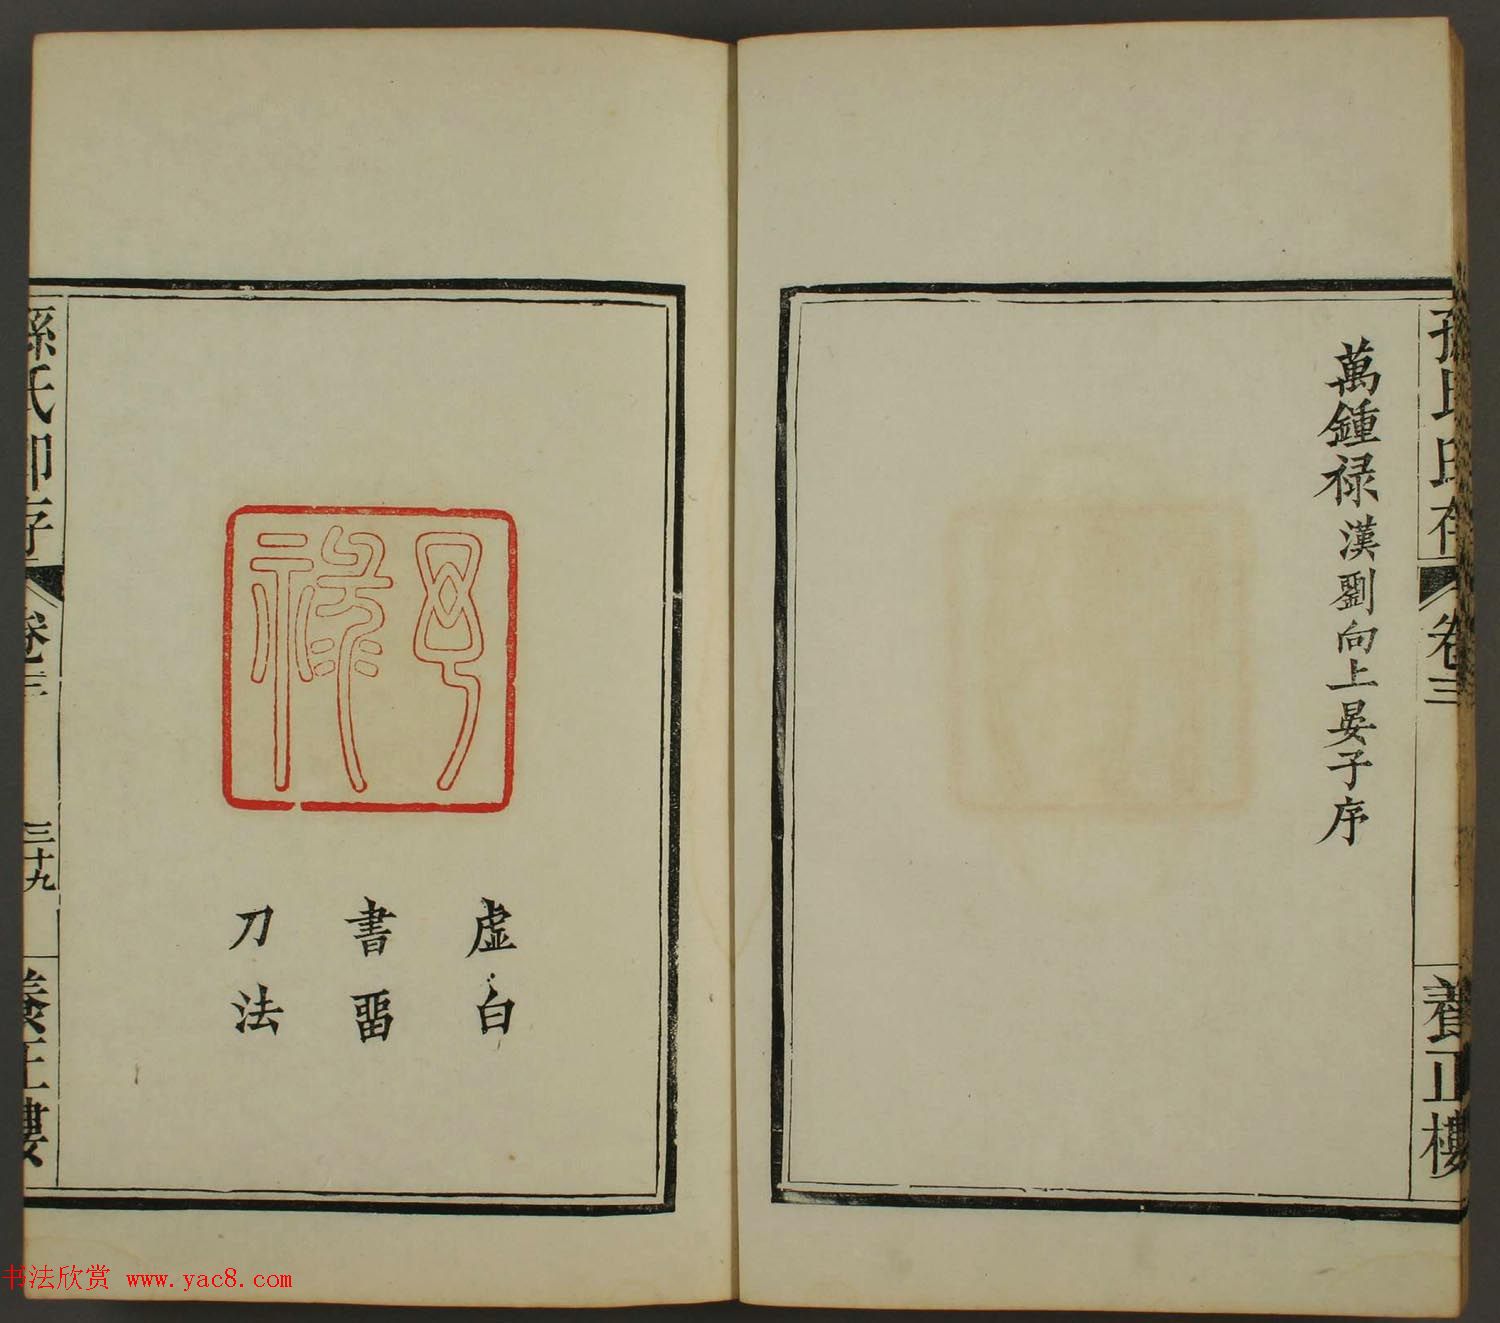 孫氏印存
卷三
養正樓
萬鍾祿漢劉向上晏子序
虛白
書畱
刀法
孫氏印存
卷三
三十九
養正樓
书法欣赏 www.yac8.com